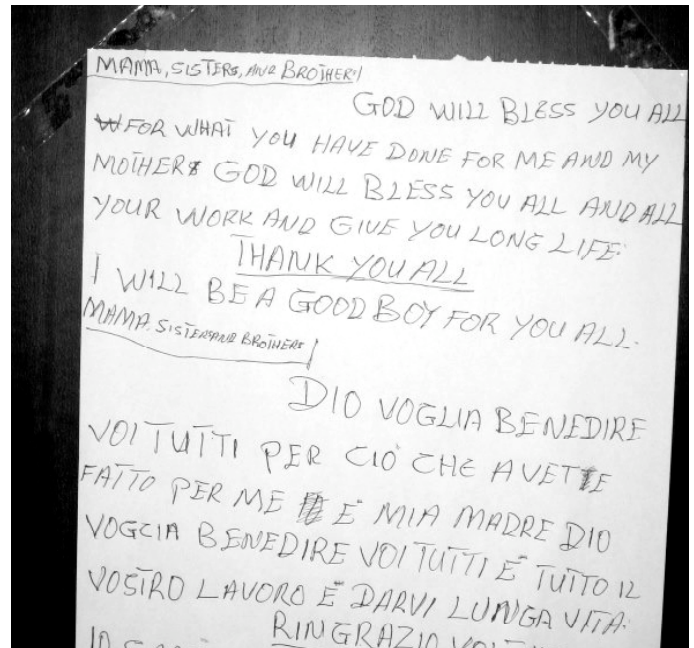 MAMA, SISTERS, AND BROTHERS/
GOD WILL BLESS YOU ALL
FOR WHAT YOU HAVE DONE FOR ME AND MY
MOTHER GOD WILL BLESS YOU ALL AND ALL
YOUR WORK AND GIVE YOU LONG LIFE.
THANK YOU ALL
I WILL BE A GOOD BOY FOR YOU ALL.
MAMA, SISTERS AND BROTHERS/
DIO VOGLIA BENEDIRE
VOI TUTTI PER CIÒ CHE AVETE
FATTO PER ME E MIA MADRE DIO
VOGLIA BENEDIRE VOI TUTTI E TUTTO IL
VOSTRO LAVORO E DARVI LUNGA VITA.
RINGRAZIO